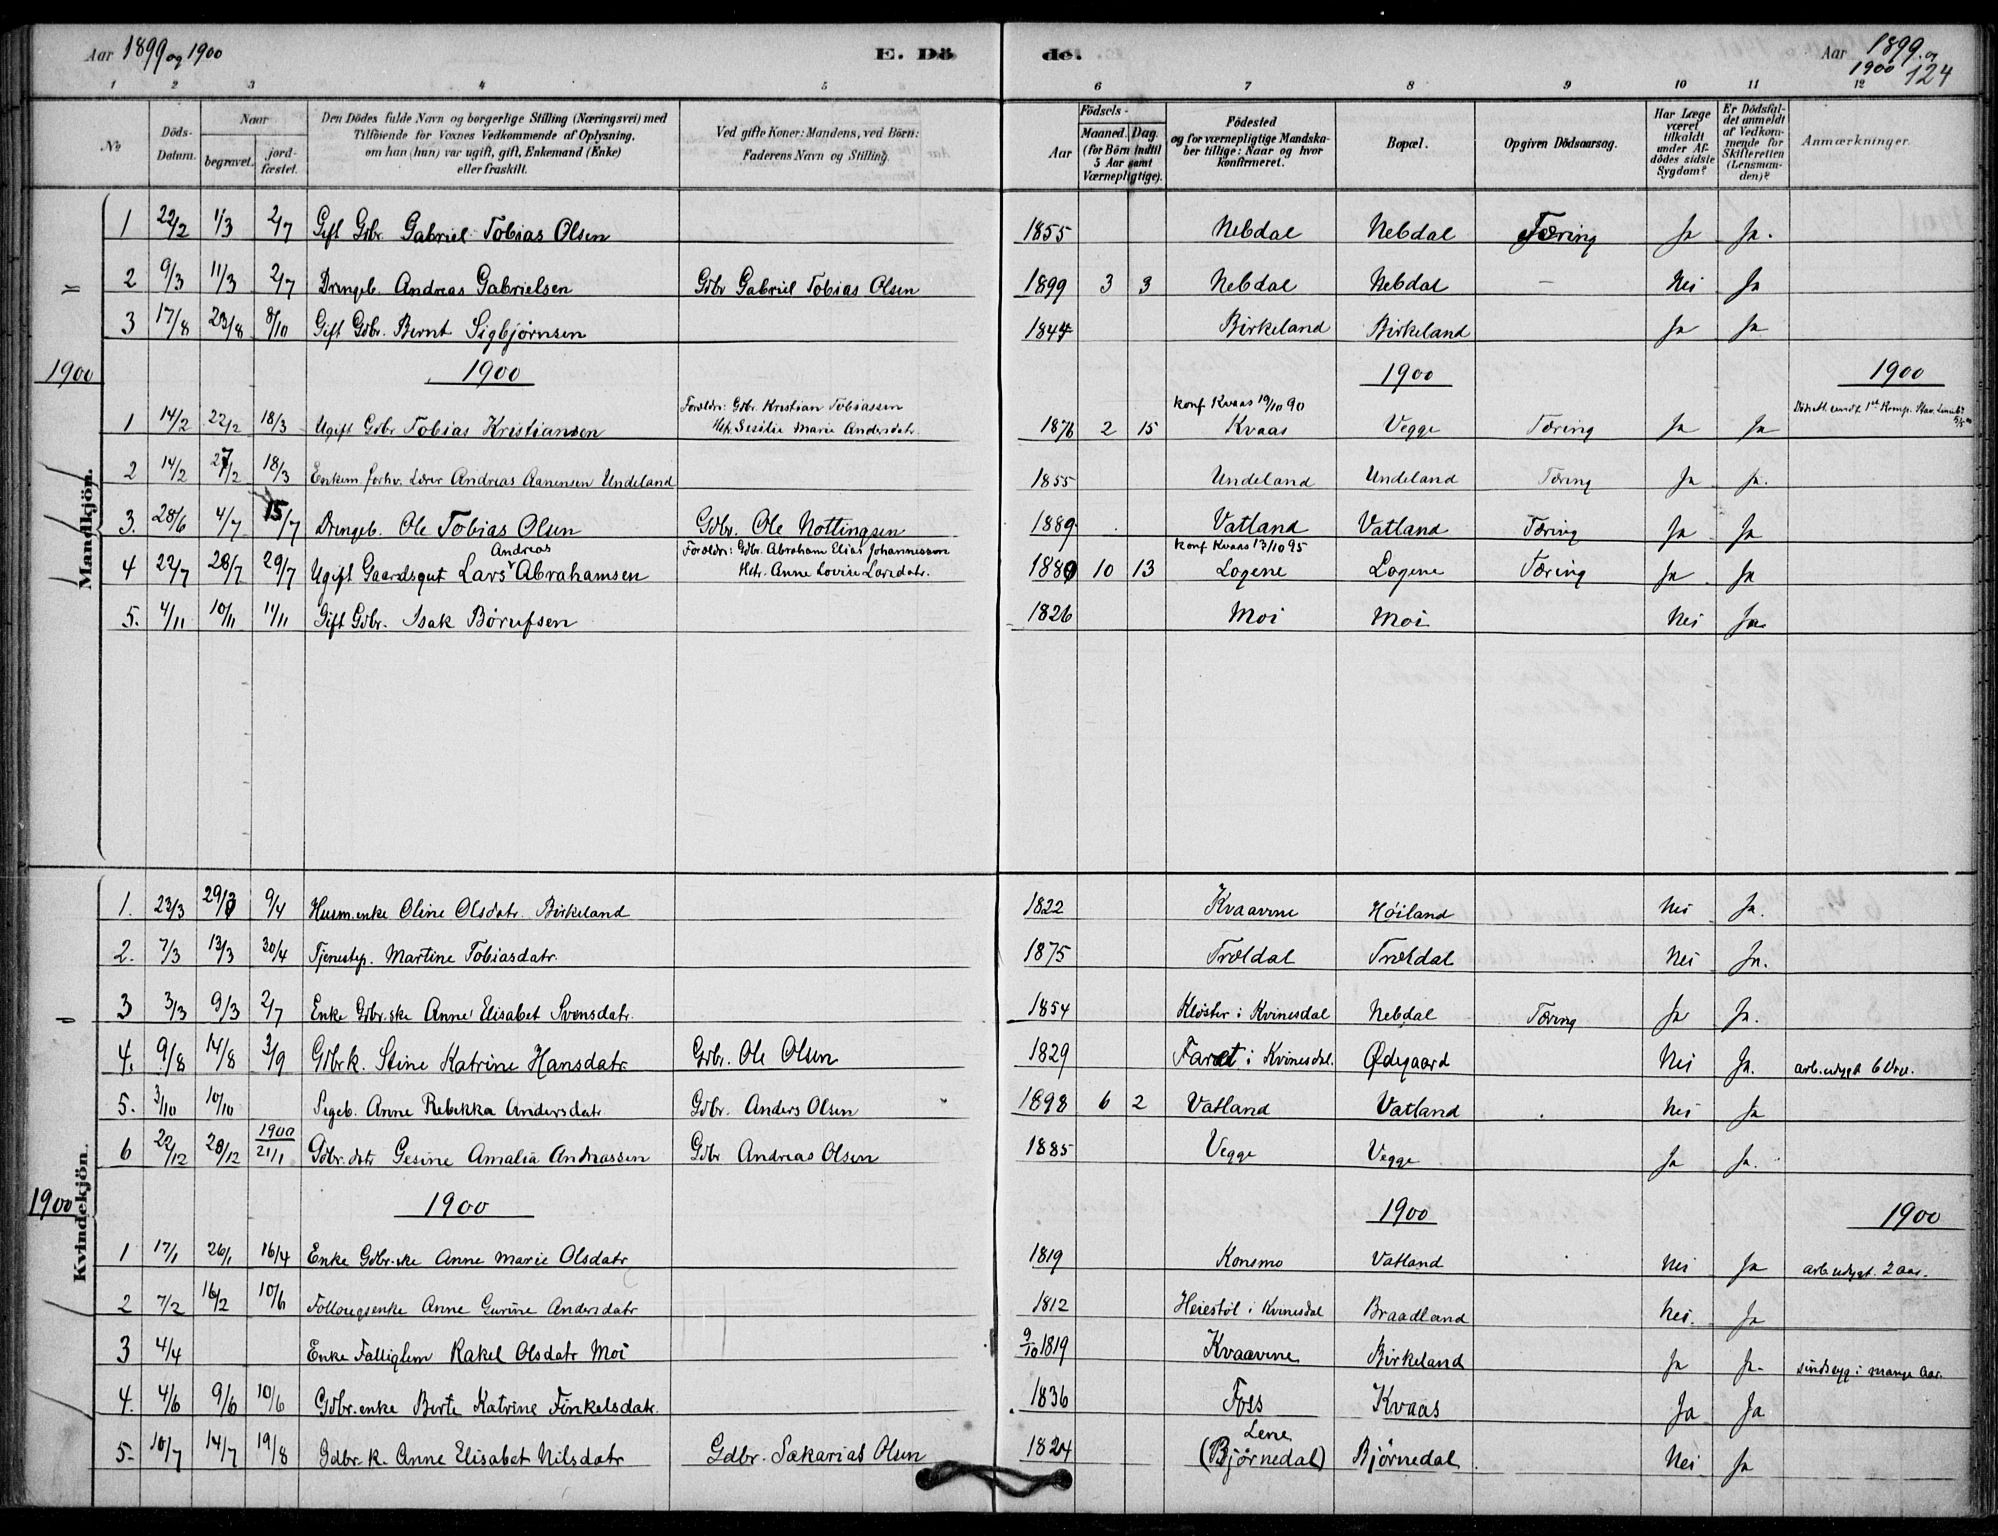 Aar 1899 og 1900 E. Dö de. Aar 1899 og 1900 124
1 2 3 4 5 6 7 8 9 10 11 12
No
Döds-Datum.
Naar
begravet.
jord-fæstet.
Den Dödes fulde Navn og borgerlige Stilling (Næringsvei) med
Tilföiende for Voxnes Vedkommende af Oplysning,
om han (hun) var ugift, gift, Enkemand (Enke)
eller fraskilt.
Ved gifte Koner: Mandens, ved Börn:
Faderens Navn og Stilling.
Födsels-
Aar
Maaned. Dag.
(for Börn indtil
5 Aar samt
Værnepligtige).
Födested
og for værnepligtige Mandska-
ber tillige: Naar og hvor
konfirmeret.
Bopæl.
Opgiven Dödsaarsag.
Har Læge
været
tilkaldt
under Af-
dödes sidste
Sygdom?
Er Dödsfal-
det anmeldt
af Vedkom-
mende for
Skifteretten
(Lensman-
den)?
Anmærkninger.
Mandkjön.
1 22/2 1/3 2/7 Gift Gdbr. Gabriel Tobias Olsen 1855 Nebdal Nebdal Tæring Ja Ja.
2 9/3 11/3 2/7 Drengeb. Andreas Gabrielsen Gdbr Gabriel Tobias Olsen 1899 3 3 Nebdal Nebdal — Nei Ja
3 17/8 23/8 8/10 Gift Gdbr. Bernt Sigbjørnsen 1844 Birkeland Birkeland Ja Ja
1900 1900 1900 1900
1 14/2 22/2 18/3 Ugift Gdbr Tobias Kristiansen Forældr: Gdbr. Kristian Tobiassen Hst. Sesilie Marie Andersdatr. 1876 2 15 konf Kvaas 19/10 90 Kvaas Vegge Tæring Ja Ja
2 14/2 27/2 18/3 Enkem. forhv. Lærer Andreas Aanensen Undeland 1855 Undeland Undeland Tæring Ja Ja.
3. 28/6 4/7 15/7 Drengeb. Ole Tobias Olsen Gdbr. Ole Nottingsen 1889 Vatland Vatland Tæring Ja Ja
4 22/7 28/7 29/7 Ugift Gaardsgut Lars Andreas Abrahamsen Forældr: Gdbr. Abraham Elias Johannessen Hst. Anne Lovise Larsdatr. 1880 10 13 konf Kvaas 13/10 95 Logene Logene Tæring Ja Ja
5. 4/11 10/11 11/11 Gift Gdbr. Isak Børufsen 1826 Moi Moi Nei Ja.
Kvindekjön.
1. 23/3 29/3 9/4 Husm.enke Oline Olsdatr. Birkeland 1822 Kvaavine Høiland Nei Ja.
2. 7/3 13/3 30/4 Tjenestep. Martine Tobiasdatr. 1875 Trældal Trældal Nei Ja.
3 3/3 9/3 2/7 Enke Gdbr.ske Anne Elisabet Svensdatr. 1854 Kloster i Kvinesdal Nebdal Tæring Ja Ja.
4. 9/8 14/8 3/9 Gdbrk. Stine Katrine Hansdatr. Gdbr. Ole Olsen 1829 Faret i Kvinesdal. Ødegaard Nei Ja. arb.udygt 6 Uger.
5. 3/10 10/10 Pigeb. Anne Rebekka Andersdatr Gdbr. Anders Olsen 1898 6 2 Vatland Vatland Nei Ja
6 22/12 28/12 1900 21/1 Gdbr.datr Gesine Amalia Andreassen Gdbr Andreas Olsen 1885 Vegge Vegge Ja Ja.
1900 1900 1900 1900
1 17/1 26/1 16/4 Enke Gdbr.ske Anne Marie Olsdatr 1819 Konsmo Vatland Nei Ja arb.udygt. 2 aar.
2 7/2 16/2 10/6 Follougsenke Anne Gurine Andersdatr 1812 Heiestøl i Kvinesdal Braadland Nei. Ja
3 4/4 Enke Fattiglem Rakel Olsdatr Moi 9/10 1819 Kvaavine Birkeland Ja Ja. sindssyg i mange Aar.
4. 4/6 9/6 10/6 Gdbr.enke Berte Katrine Finkelsdatr. 1836 Foss Kvaas Ja Ja
5. 10/7 14/7 19/8 Gdbr.k. Anne Elisabet Nilsdatr Gdbr. Sakarias Olsen 1824 Lene (Bjørnedal) Bjørnedal Nei Ja